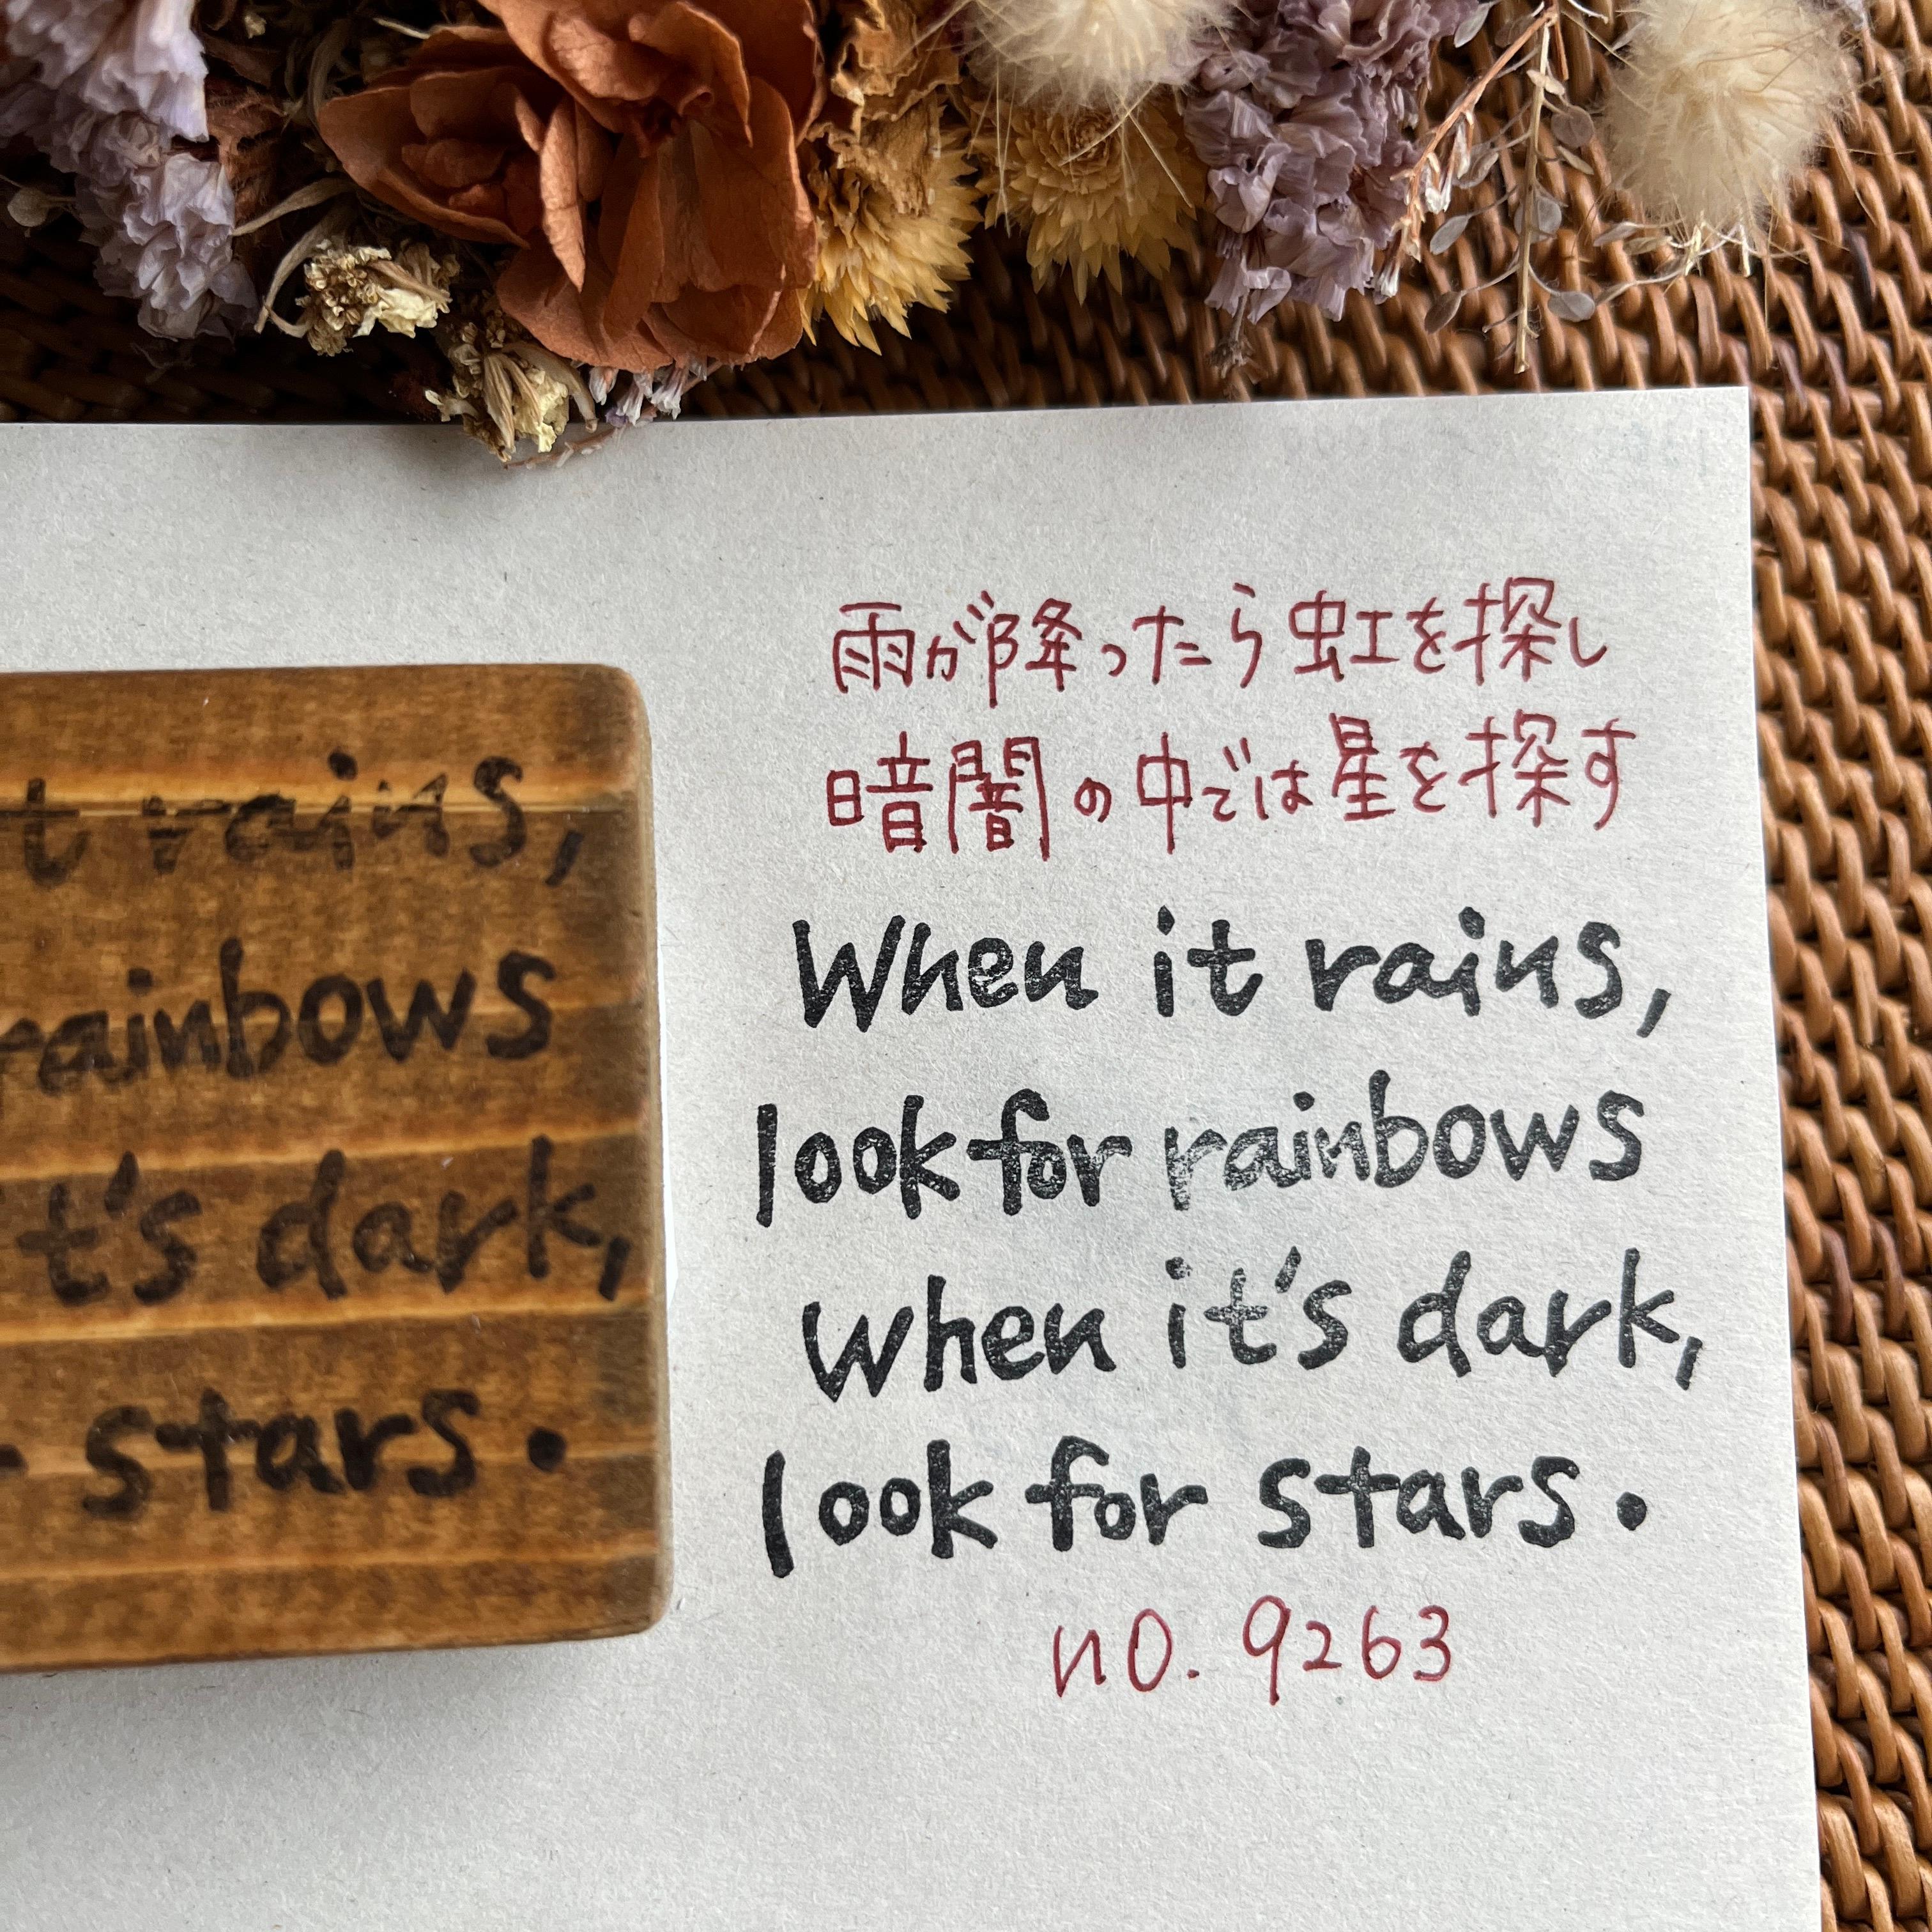 雨が降ったら虹を探し
暗闇の中では星を探す
When it rains,
look for rainbows
when it's dark,
look for stars.
no. 9263
t rains,
rainbows
t's dark,
stars.